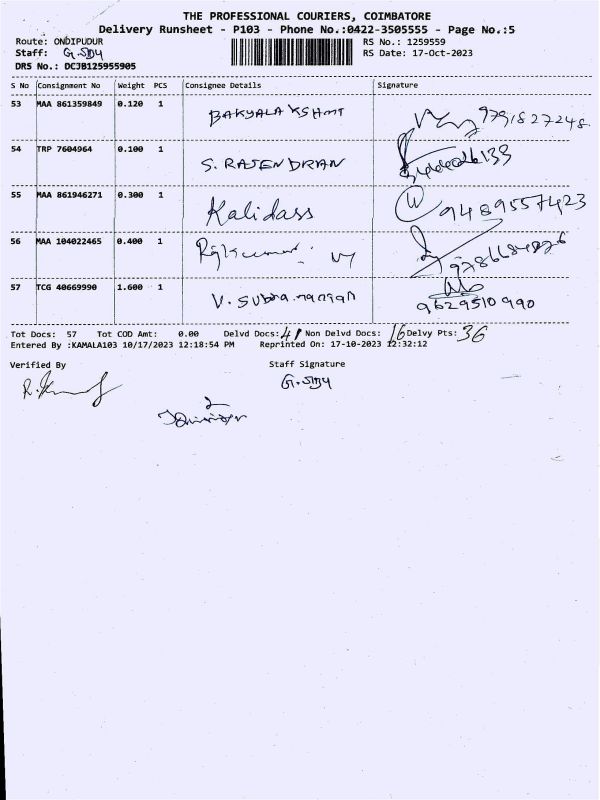 THE PROFESSIONAL COURIERS, COIMBATORE
Delivery Runsheet - P103 - Phone No.:0422-3505555 - Page No.:5
Route: ONDIPUDUR RS No.: 1259559
Staff: RS Date: 17-Oct-2023
DRS No.: DCJB125955905
S No Consignment No Weight PCS Consignee Details Signature
53 MAA 861359849 0.120 1 BAKYALAKSHMI 9791827248
54 TRP 7604964 0.100 1 S. RAJENDRAN
55 MAA 861946271 0.300 1 Kalidass 9489557423
56 MAA 104022465 0.400 1 Rajkumar
57 TCG 40669990 1.600 1 V. Subramanian 9629510990
Tot Docs: 57 Tot COD Amt: 0.00 Delvd Docs: 41 Non Delvd Docs: 16 Delvy Pts: 36
Entered By :KAMALA103 10/17/2023 12:18:54 PM Reprinted On: 17-10-2023 12:32:12
Verified By Staff Signature